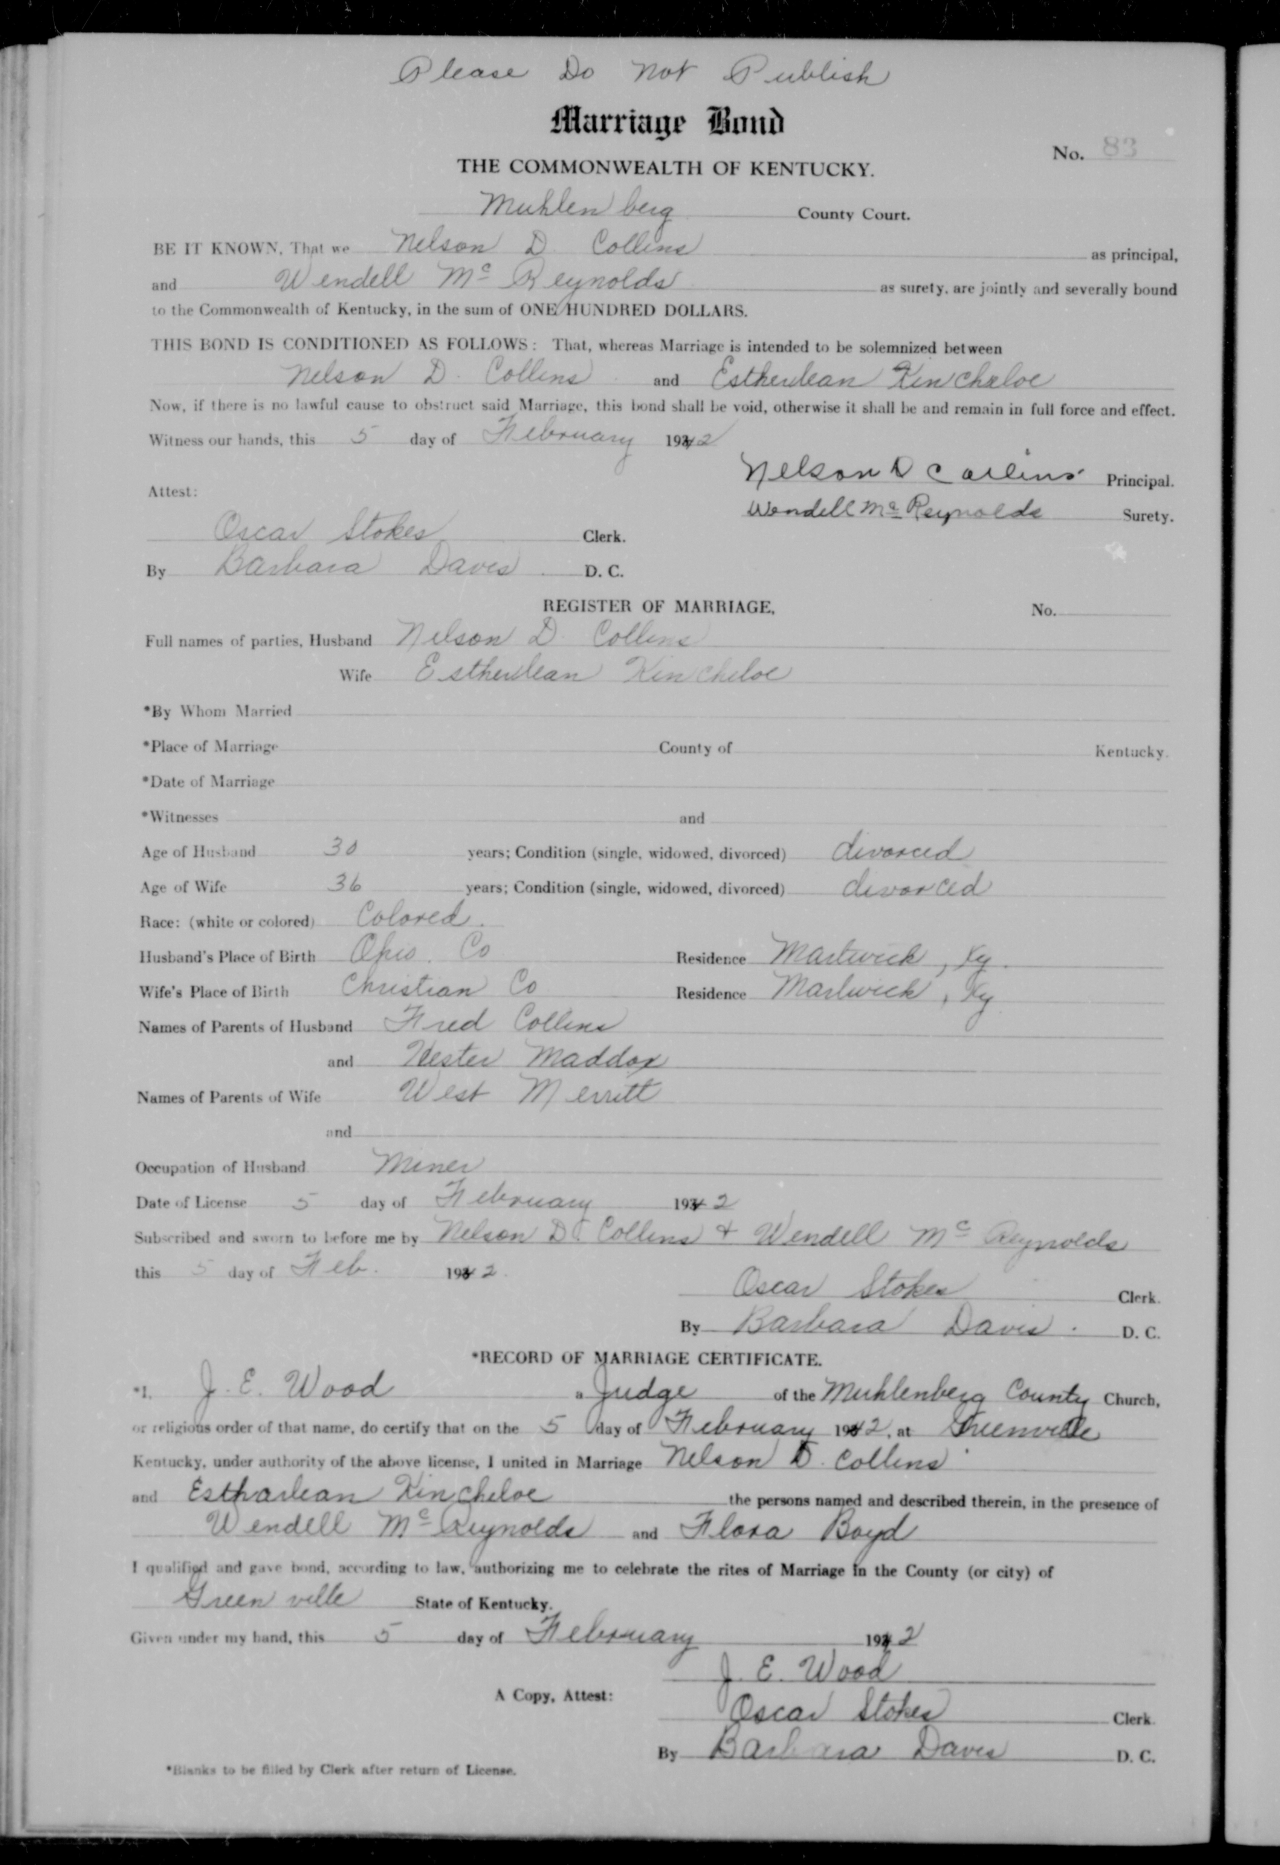 Please Do Not Publish
Marriage Bond
No. 83
THE COMMONWEALTH OF KENTUCKY.
Muhlenberg County Court.
BE IT KNOWN, That we Nelson D. Collins as principal,
and Wendell McReynolds as surety, are jointly and severally bound
to the Commonwealth of Kentucky, in the sum of ONE HUNDRED DOLLARS.
THIS BOND IS CONDITIONED AS FOLLOWS: That, whereas Marriage is intended to be solemnized between
Nelson D. Collins and Estherlean Kincheloe
Now, if there is no lawful cause to obstruct said Marriage, this bond shall be void, otherwise it shall be and remain in full force and effect.
Witness our hands, this 5 day of February 1942
Nelson D Collins Principal.
Attest:
Wendell McReynolds Surety.
Oscar Stokes Clerk.
By Barbara Davis D. C.
REGISTER OF MARRIAGE, No.
Full names of parties, Husband Nelson D. Collins
Wife Estherlean Kincheloe
*By Whom Married
*Place of Marriage County of Kentucky.
*Date of Marriage
*Witnesses and
Age of Husband 30 years; Condition (single, widowed, divorced) divorced
Age of Wife 36 years; Condition (single, widowed, divorced) divorced
Race: (white or colored) Colored.
Husband's Place of Birth Ohio. Co Residence Martwick, Ky.
Wife's Place of Birth Christian Co Residence Martwick, Ky
Names of Parents of Husband Fred Collins
and Hester Maddox
Names of Parents of Wife West Merritt
and
Occupation of Husband Miner
Date of License 5 day of February 1942
Subscribed and sworn to before me by Nelson D. Collins & Wendell McReynolds
this 5 day of Feb. 1942.
Oscar Stokes Clerk.
By Barbara Davis. D. C.
*RECORD OF MARRIAGE CERTIFICATE.
*I, J. E. Wood a Judge of the Muhlenberg County Church,
or religious order of that name, do certify that on the 5 day of February 1942, at Greenville
Kentucky, under authority of the above license, I united in Marriage Nelson D. Collins
and Estharlean Kincheloe the persons named and described therein, in the presence of
Wendell McReynolds and Flora Boyd
I qualified and gave bond, according to law, authorizing me to celebrate the rites of Marriage in the County (or city) of
Greenville State of Kentucky.
Given under my hand, this 5 day of February 1942
J. E. Wood
A Copy, Attest:
Oscar Stokes Clerk.
By Barbara Davis D. C.
*Blanks to be filled by Clerk after return of License.